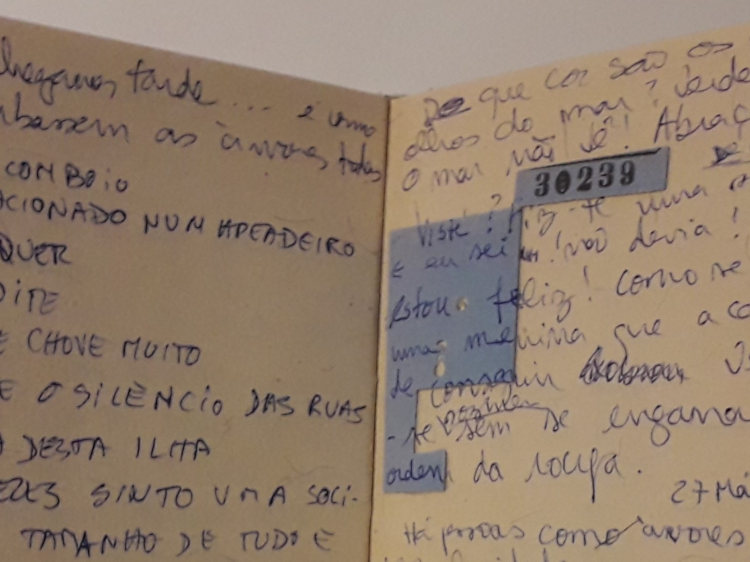 chegamos tarde... é como
acabassem as árvores todas
COMBOIO
CIONADO NUM APEADEIRO
QUER
OITE
E CHOVE MUITO
E O SILÊNCIO DAS RUAS
DESTA ILHA
EZES SINTO UMA SOCI-
TAMANHO DE TUDO E
De que cor são os
olhos do mar? Verde
O mar não vê! Abraç
30239
Viste? Fiz-te uma
E eu sei! não devia!
Estou feliz! Como se
uma menina que aca
de conseguir
-se sem se engana
ordem da roupa.
27 Má
Há pessoas como árvores